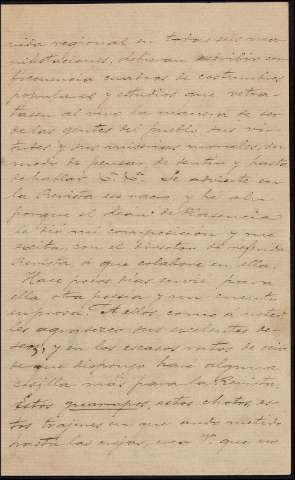 vida regional en todas sus ma-
nifestaciones, debieran escribir con
frecuencia cuadros de costumbres
populares y estudios que retra-
tasen al vivo la manera de ser
de las gentes del pueblo, sus vir-
tudes y sus miserias morales, su
modo de pensar, de sentir y hasta
de hablar &. &. Se advierte en
la Revista ese vacío, y he ahí
porque el deán de Plasencia
le dió mi composición y me
excita, con el Director de referida
Revista, a que colabore en ella.
Hace pocos días envié para
ella otra poesía y un cuento
en prosa. A ellos, como á usted
les agradezco sus excelentes de-
seos, y en los escasos ratos de ocio
de que dispongo haré alguna
cosilla más para la Revista.
Estos guarrapos, estos chotos, es-
tos trajines en que ando metido
hasta las orejas, era que no